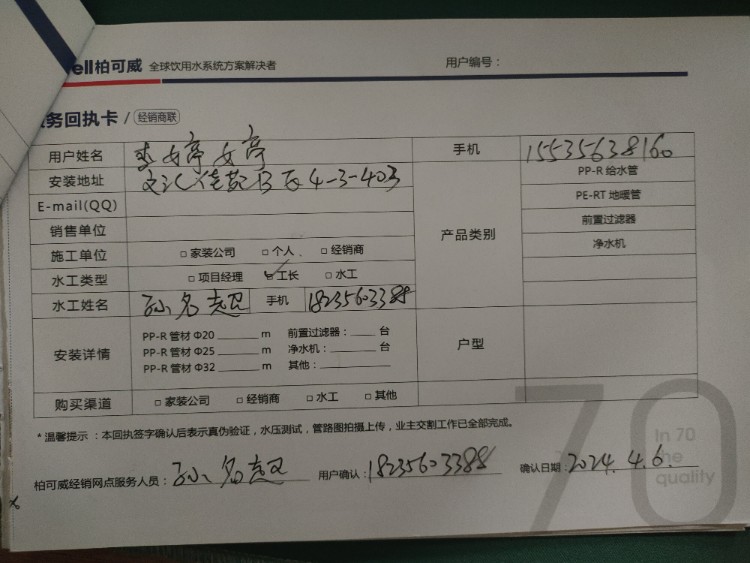 ell柏可威 全球饮用水系统方案解决者 用户编号：
务回执卡 / 经销商联
用户姓名 李女婷女亭 手机 15535638160
安装地址 文汇佳苑B区4-3-403 产品类别 PP-R 给水管
E-mail(QQ) PE-RT 地暖管
销售单位 前置过滤器
施工单位 □ 家装公司 □ 个人 □ 经销商 净水机
水工类型 □ 项目经理 ☑ 工长 □ 水工
水工姓名 孙名 手机 18235603388
安装详情 PP-R 管材 Φ20 ______ m 前置过滤器：____ 台 户型
PP-R 管材 Φ25 ______ m 净水机：____ 台
PP-R 管材 Φ32 ______ m 其他：________
购买渠道 □ 家装公司 □ 经销商 □ 水工 □ 其他
* 温馨提示：本回执签字确认后表示真伪验证，水压测试，管路图拍摄上传，业主交割工作已全部完成。
柏可威经销网点服务人员：孙名 用户确认：18235603388 确认日期：2024.4.6.
70
In 70
the
quality